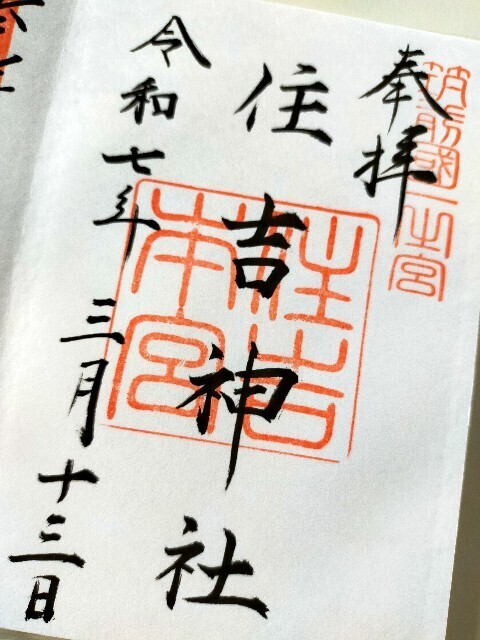 筑前國一之宮
奉拝
住吉神社
住吉
本宮
令和七年三月十三日